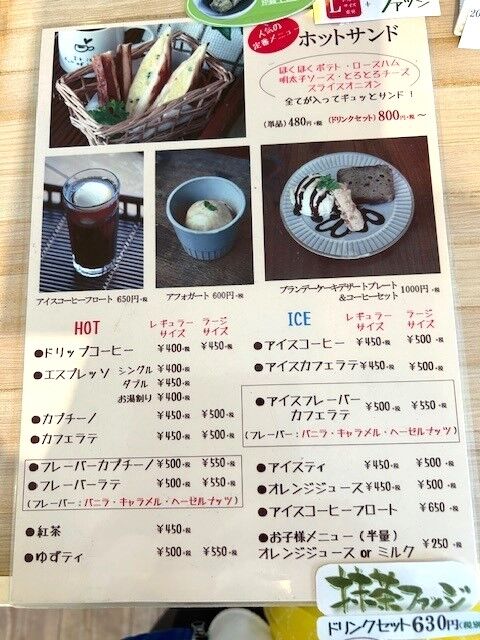 人気の
定番メニュー
ホットサンド
ほくほくポテト・ロースハム
明太子ソース・とろとろチーズ
スライスオニオン
全てが入ってギュッとサンド！
(単品) 480円+税 (ドリンクセット) 800円+税～
アイスコーヒーフロート 650円+税
アフォガート 600円+税
ブランデーケーキデザートプレート
&コーヒーセット 1000円+税
HOT レギュラーサイズ ラージサイズ
●ドリップコーヒー ¥400+税 ¥450+税
●エスプレッソ シングル ¥400+税
ダブル ¥450+税
お湯割り ¥400+税
●カプチーノ ¥450+税 ¥500+税
●カフェラテ ¥450+税 ¥500+税
●フレーバーカプチーノ ¥500+税 ¥550+税
●フレーバーラテ ¥500+税 ¥550+税
(フレーバー：バニラ・キャラメル・ヘーゼルナッツ)
●紅茶 ¥450+税
●ゆずティ ¥500+税 ¥550+税
ICE レギュラーサイズ ラージサイズ
●アイスコーヒー ¥450+税 ¥500+税
●アイスカフェラテ ¥450+税 ¥500+税
●アイスフレーバー
カフェラテ ¥500+税 ¥550+税
(フレーバー：バニラ・キャラメル・ヘーゼルナッツ)
●アイスティ ¥450+税 ¥500+税
●オレンジジュース ¥450+税 ¥500+税
●アイスコーヒーフロート ¥650+税
●お子様メニュー（半量）
オレンジジュース or ミルク ¥250+税
抹茶ファッジ
ドリンクセット 630円(税別)